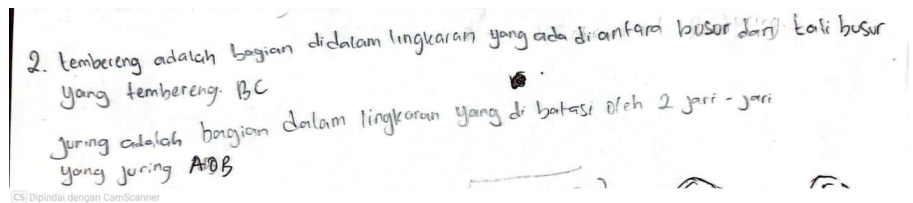 2. tembereng adalah bagian didalam lingkaran yang ada diantara busur dan tali busur
yang tembereng. BC
juring adalah bagian dalam lingkaran yang di batasi oleh 2 jari-jari
yang juring AOB
CS Dipindai dengan CamScanner